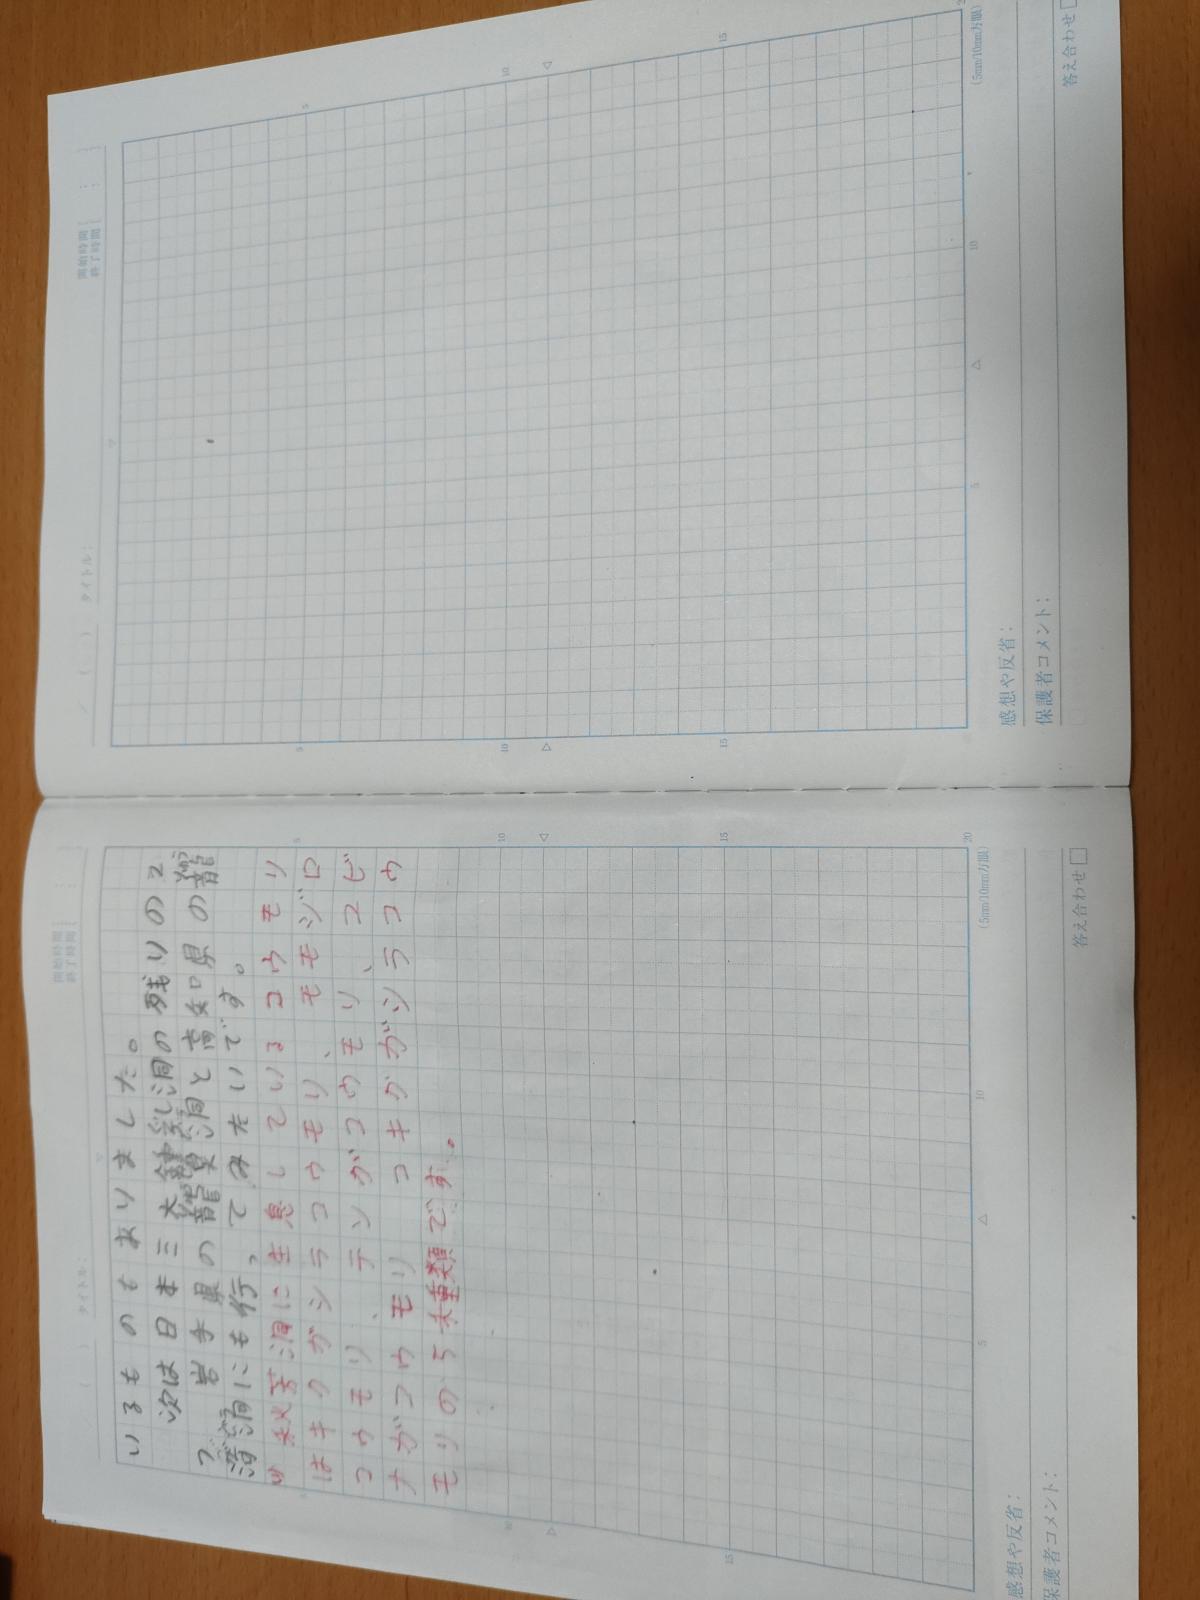 ／ （ ） タイトル：
開始時間［ ： ］
終了時間［ ： ］
いるものもありました。
次は日本三大鍾乳洞の残りの2
つ岩手県の龍泉洞と高知県の龍
河洞にも行ってみたいです。
※秋芳洞に生息しているコウモリ
はキクガシラコウモリ、モモジロ
コウモリ、テングコウモリ、ユビ
ナガコウモリ コキクガシラコウ
モリの5種類です。
(5mm/10mm方眼)
感想や反省：
保護者コメント：
答え合わせ□
／ （ ） タイトル：
開始時間［ ： ］
終了時間［ ： ］
(5mm/10mm方眼)
感想や反省：
保護者コメント：
答え合わせ□